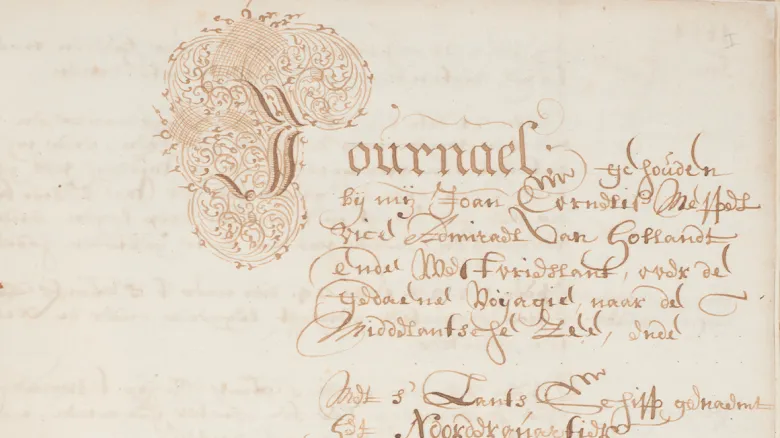 Journael gehouden
bij mij Joan Cornelis Meppell
Vice Admirael van Hollandt
ende Westvrieslant, over de
gedaene Voyagie, naar de
Middelantsche Zee, ende
Met s' Lants Schipp genaemt
het Noorderquartier